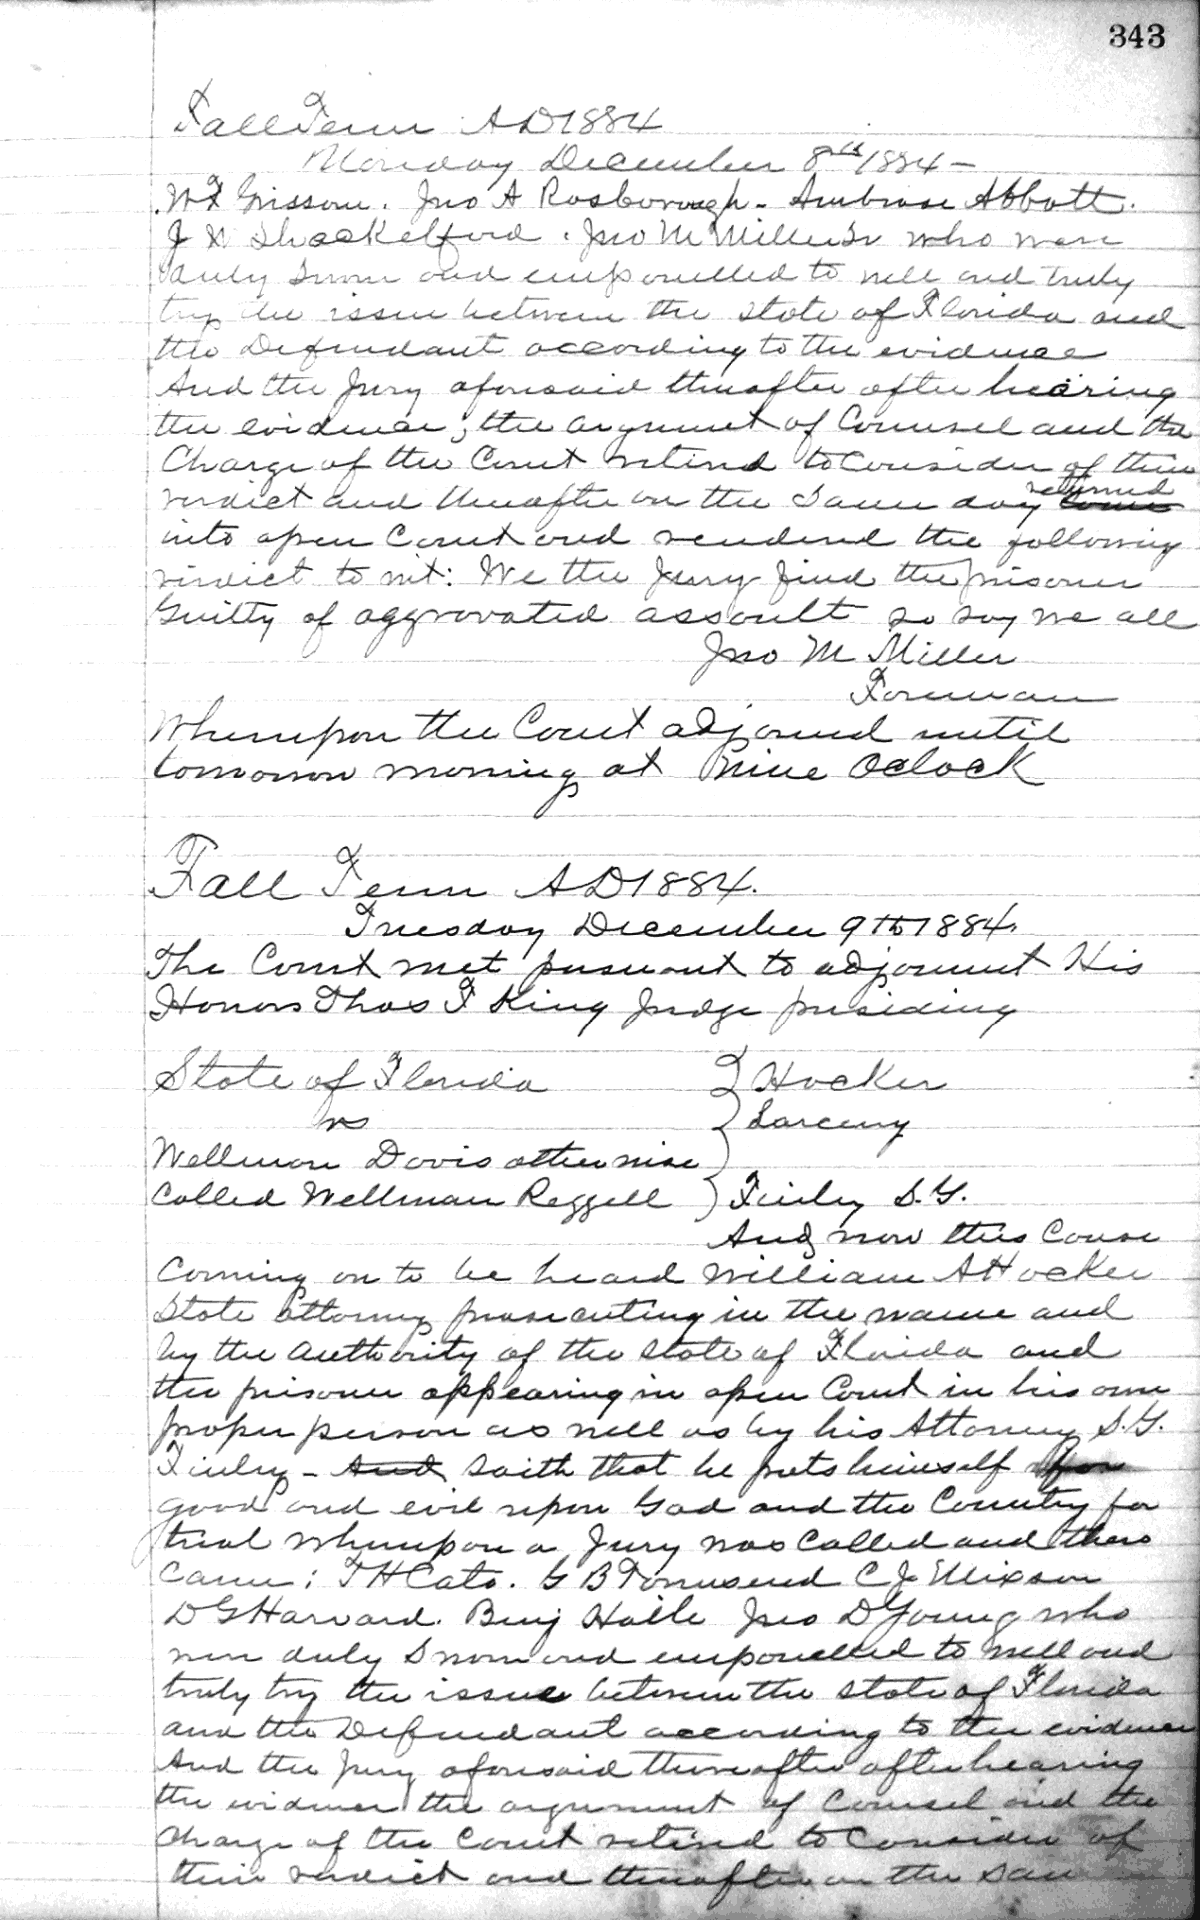 343
Fall Term AD 1884
Monday December 8th 1884 -
W F Grissom. Jno A Rosborough - Ambrose Abbott.
J N Shackelford. Jno M Miller Sr who were
duly sworn and empanelled to well and truly
try the issue between the State of Florida and
the Defendant according to the evidence
And the Jury aforesaid thereafter after hearing
the evidence, the argument of Counsel and the
Charge of the Court retired to consider of their
verdict and thereafter on the same day returned
into open Court and rendered the following
verdict to wit: We the Jury find the prisoner
Guilty of aggravated assault so say we all
Jno M Miller
Foreman
Whereupon the Court adjourned until
tomorrow morning at nine Oclock
Fall Term AD 1884.
Tuesday December 9th 1884.
The Court met pursuant to adjournment His
Honor Thos F King Judge presiding
State of Florida } Hocker
vs } Larceny
Wellman Davis otherwise
called Wellman Reggell } Finley S.Y.
And now this Cause
Coming on to be heard William A Hocker
State attorney prosecuting in the name and
by the authority of the State of Florida and
the prisoner appearing in open Court in his own
proper person as well as by his Attorney S.Y.
Finley - And saith that he puts himself for
good and evil upon God and the Country for
trial whereupon a Jury was called and there
Came; T H Cato. G B Townsend C J Mixson
D G Harvard. Benj Haile Jno D Young who
were duly Sworn and empanelled to well and
truly try the issue between the State of Florida
and the Defendant according to the evidence
And the Jury aforesaid thereafter after hearing
the evidence the argument of Counsel and the
charge of the Court retired to Consider of
their verdict and thereafter on the Sam